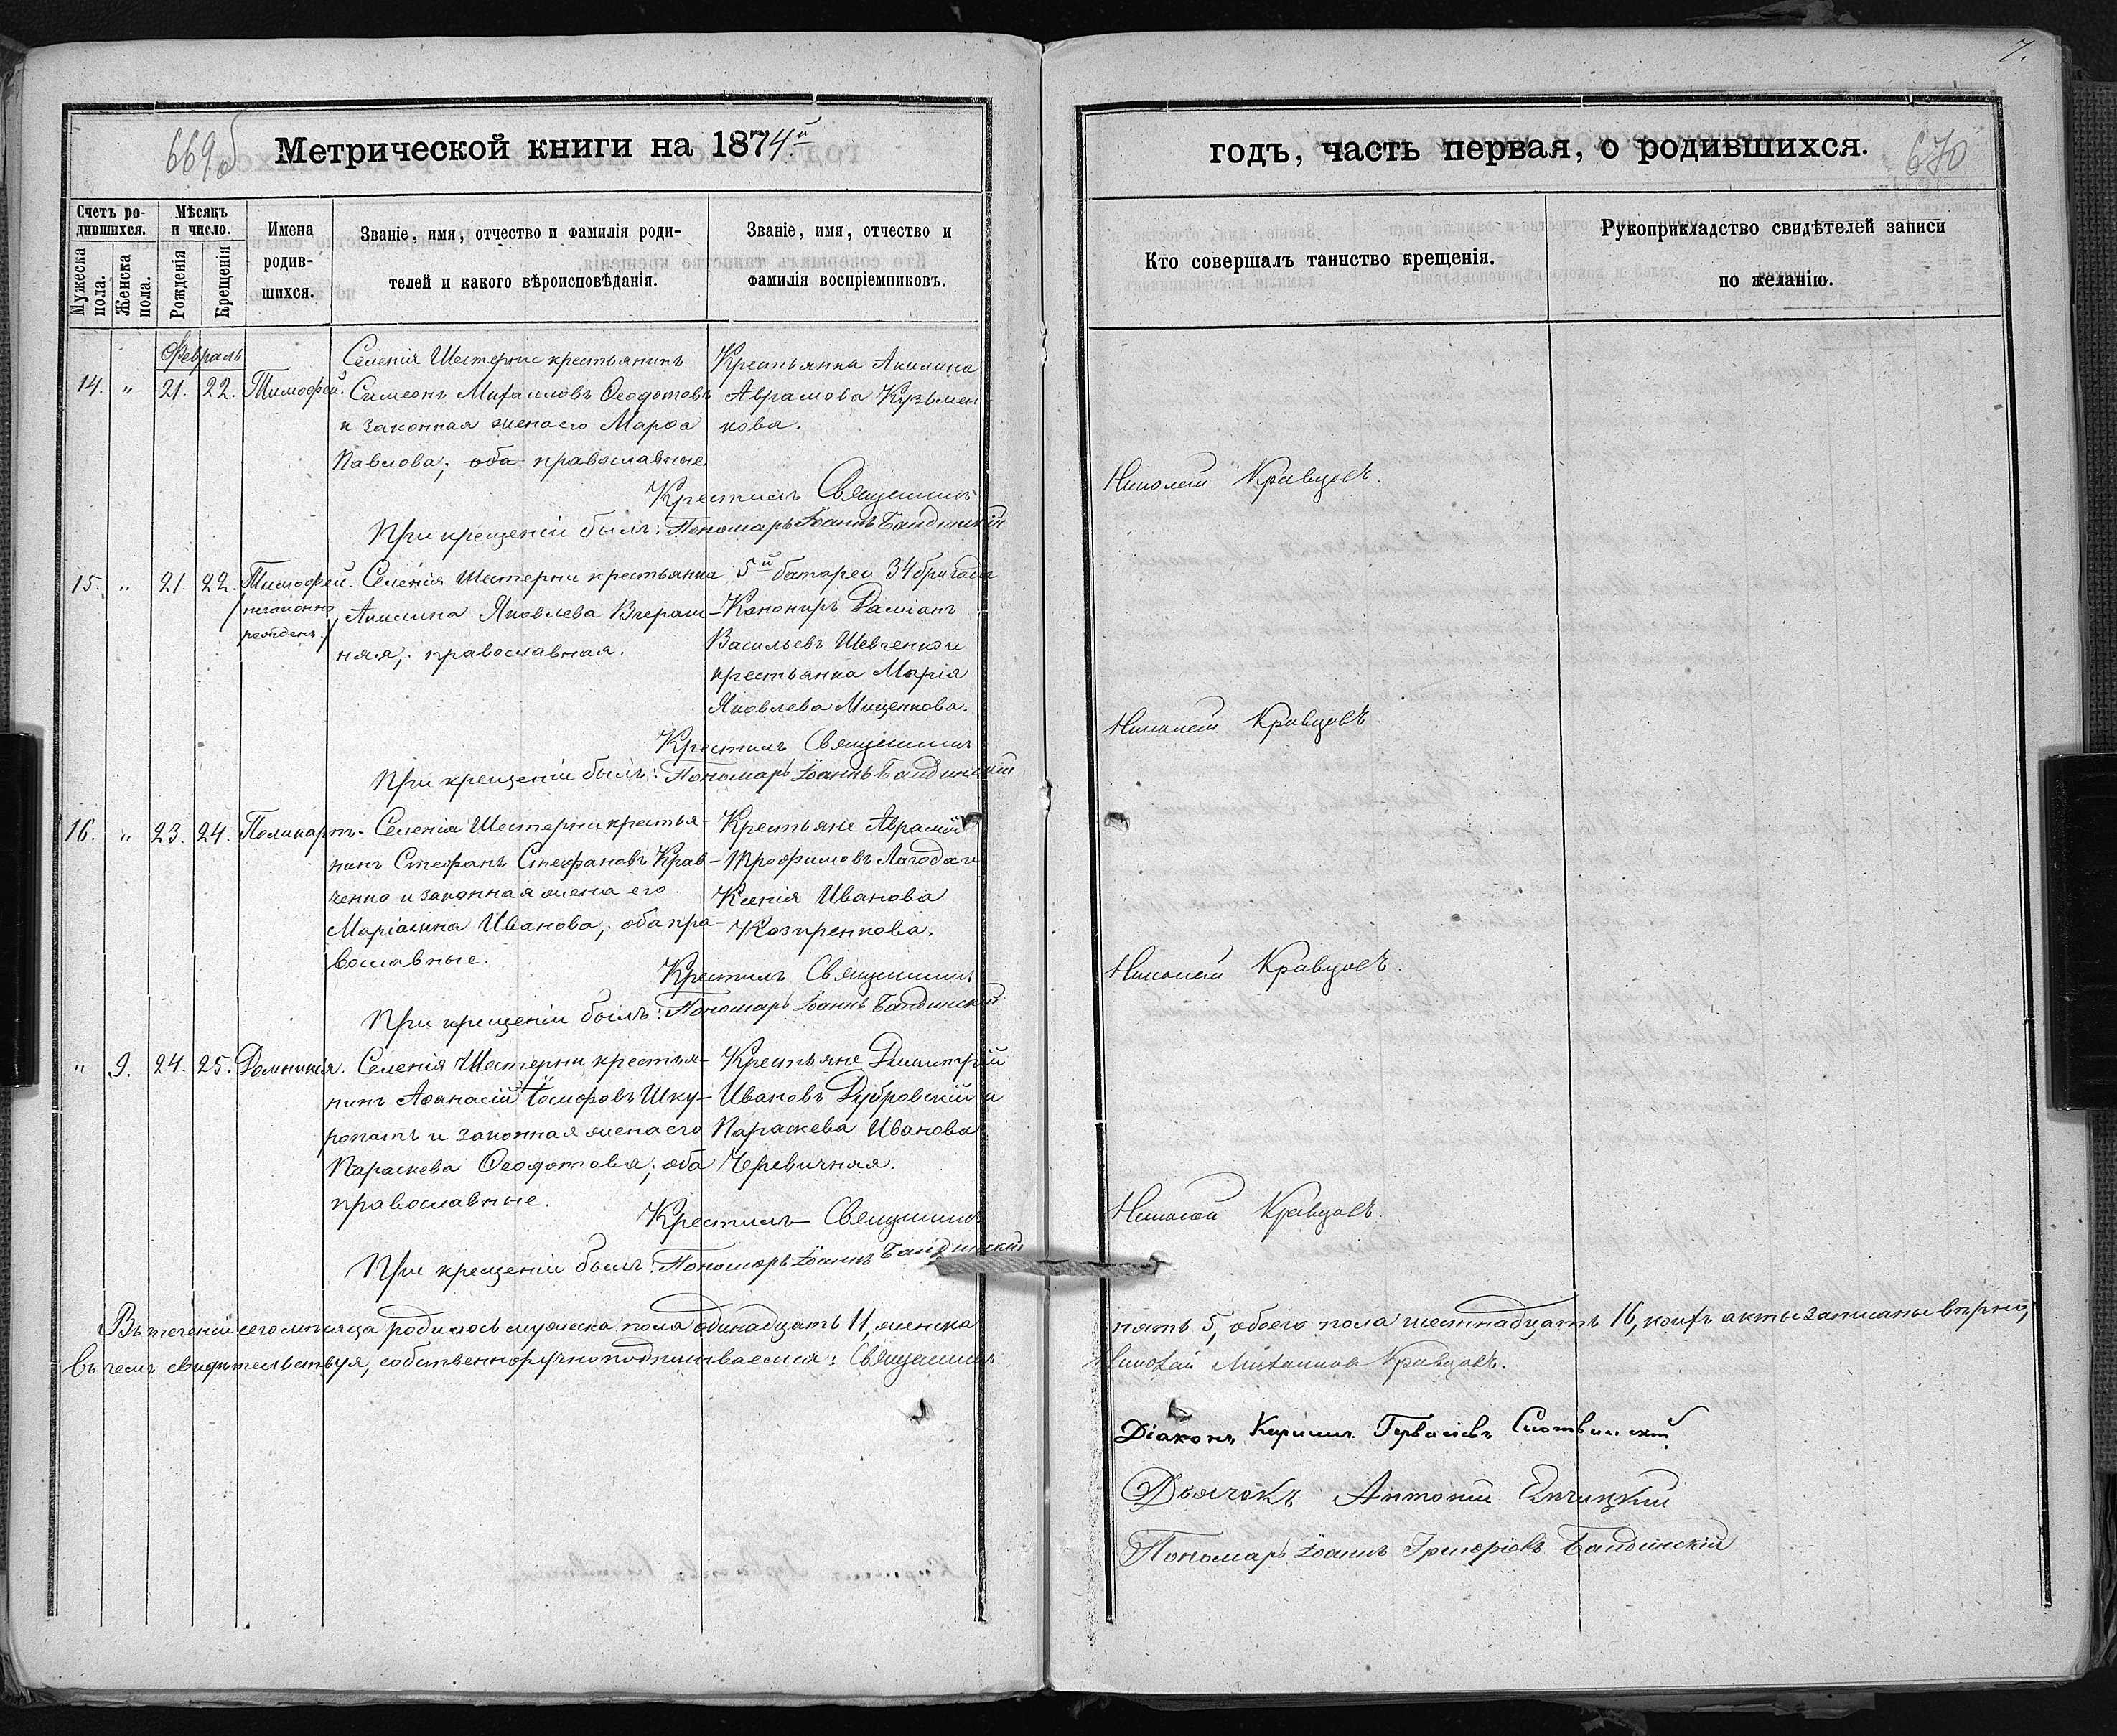 669б
Метрической книги на 1874й
Счетъ родившихся.
Мѣсяцъ и число.
Имена родившихся.
Званіе, имя, отчество и фамилія родителей и какого вѣроисповѣданія.
Званіе, имя, отчество и фамилія воспріемниковъ.
Мужеска пола.
Женска пола.
Рожденія
Крещенія
Февраль
14. " 21. 22. Тимофей.
Селенія Шестерни крестьянинъ
Симеонъ Михаиловъ Ѳеодотовъ
и законная жена его Марѳа
Павлова; оба православные.
Крестьянка Акилина
Аврамова Кузьмен
кова.
Крестилъ Священникъ
При крещеніи былъ: Пономарь Іоаннъ Бандинскій
15. " 21. 22. Тимофей.
/незаконно
рожденъ/
Селенія Шестерни крестьянка
Акилина Яковлева Вчераш-
няя; православная.
5й батареи 34 бригады
Канониръ Даміанъ
Васильевъ Шевченко и
крестьянка Марія
Яковлева Мищенкова.
Крестилъ Священникъ
При крещеніи былъ: Пономарь Іоаннъ Бандинскій
16. " 23. 24. Поликарпъ.
Селенія Шестерни крестья-
нинъ Стефанъ Стефановъ Крав-
ченко и законная жена его
Маріанна Иванова; оба пра-
вославные.
Крестьяне Аврамій
Трофимовъ Лагода и
Ксенія Иванова
Козыренкова.
Крестилъ Священникъ
При крещеніи былъ: Пономарь Іоаннъ Бандинскій
" 9. 24. 25. Домникія.
Селенія Шестерни крестья-
нинъ Аѳанасій Іосифовъ Шку-
ропатъ и законная жена его
Параскева Ѳеодотова; оба
православные.
Крестьяне Димитрій
Ивановъ Дубровскій и
Параскева Иванова
Черевичная.
Крестилъ Священникъ
При крещеніи былъ: Пономарь Іоаннъ Бандинскій
Въ теченіи сего мѣсяца родилось мужеска пола одинадцать 11, женска
въ чемъ свидѣтельствуя, собственноручно подписываемся: Священникъ
7.
годъ, часть первая, о родившихся.
670
Кто совершалъ таинство крещенія.
Рукоприкладство свидѣтелей записи по желанію.
Николай Кравцовъ.
Николай Кравцовъ.
Николай Кравцовъ.
Николай Кравцовъ.
пять 5, обоего пола шестнадцать 16, коихъ акты записаны вѣрно,
Николай Михаиловъ Кравцовъ.
Діаконъ Кириллъ Гервасіевъ
Дьячокъ Антоній
Пономарь Іоаннъ Григоріевъ Бандинскій